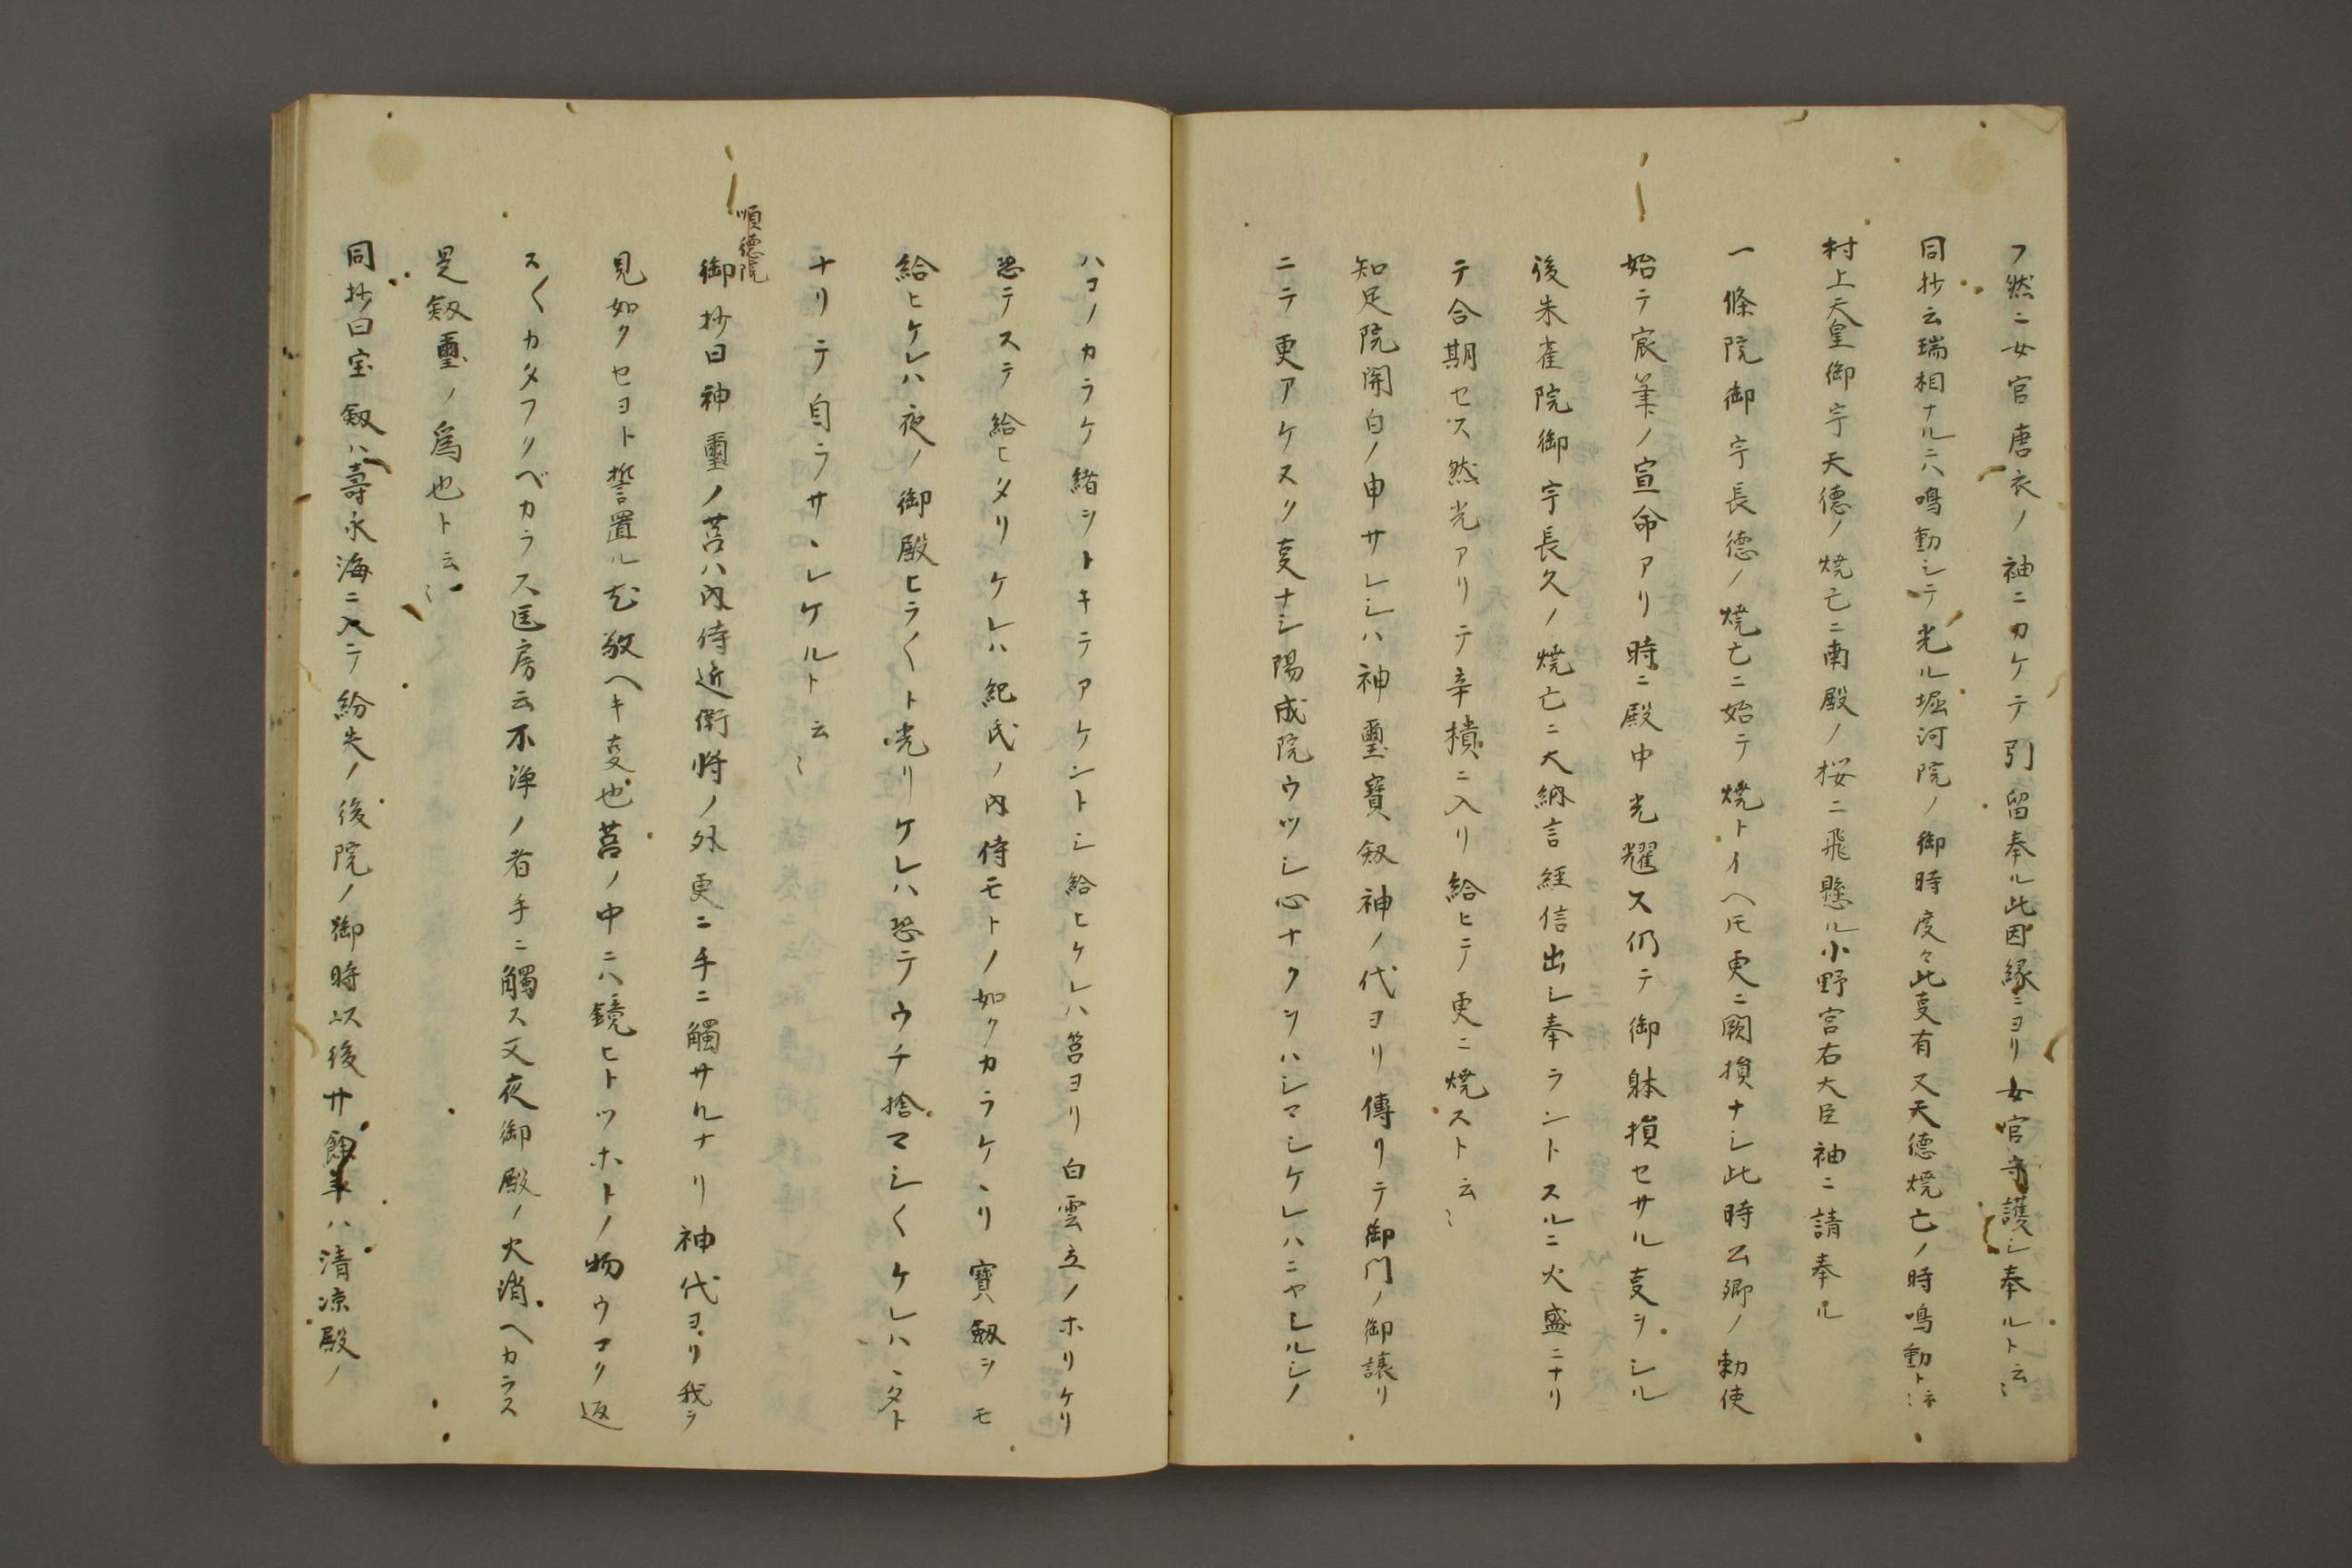 フ然ニ女官唐衣ノ袖ニカケテ引留奉ル此因縁ニヨリ女官守護シ奉ルト云〻
同抄云瑞相ナルニハ鳴動シテ光ル堀河院ノ御時度々此叓有又天德焼亡ノ時鳴動ト云〻
村上天皇御宇天德ノ焼亡ニ南殿ノ桜ニ飛懸ル小野宮右大臣袖ニ請奉ル
一條院御宇長德ノ焼亡ニ始テ焼トイヘ𪜈更ニ闕損ナシ此時公卿ノ勅使
始テ宸筆ノ宣命アリ時ニ殿中光耀ス仍テ御躰損セサル叓ヲシル
後朱雀院御宇長久ノ焼亡ニ大納言經信出シ奉ラントスルニ火盛ニナリ
テ合期セス然光アリテ辛樻ニ入リ給ヒテ更ニ焼スト云〻
知足院関白ノ申サレシハ神璽寳釼神ノ代ヨリ傳リテ御門ノ御譲リ
ニテ更アケヌク叓ナシ陽成院ウツシ心ナクヲハシマシケレハニヤシルシノ
ハコノカラケ緒ヲトキテアケントシ給ヒケレハ筥ヨリ白雲立ノホリケリ
恐テステ給ヒタリケレハ紀氏ノ内侍モトノ如クカラケヽリ寳釼ヲモ
給ヒケレハ夜ノ御殿ヒラ〱ト光リケレハ恐テウチ捨マシ〱ケレハヽタト
ナリテ自ラサヽレケルト云〻
順德院
御抄曰神璽ノ筥ハ内侍近衛将ノ外更ニ手ニ觸サルナリ神代ヨリ我ヲ
見如クセヨト誓置ル尤敬ヘキ叓也筥ノ中ニハ鏡ヒトツホトノ物ウコク返
ス〱カタフクベカラス匡房云不浄ノ者手ニ觸ス又夜御殿ノ火消ヘカラス
是釼璽ノ爲也ト云〻
同抄曰宝釼ハ壽永海ニ入テ紛失ノ後院ノ御時以後廿餘年ハ清凉殿ノ